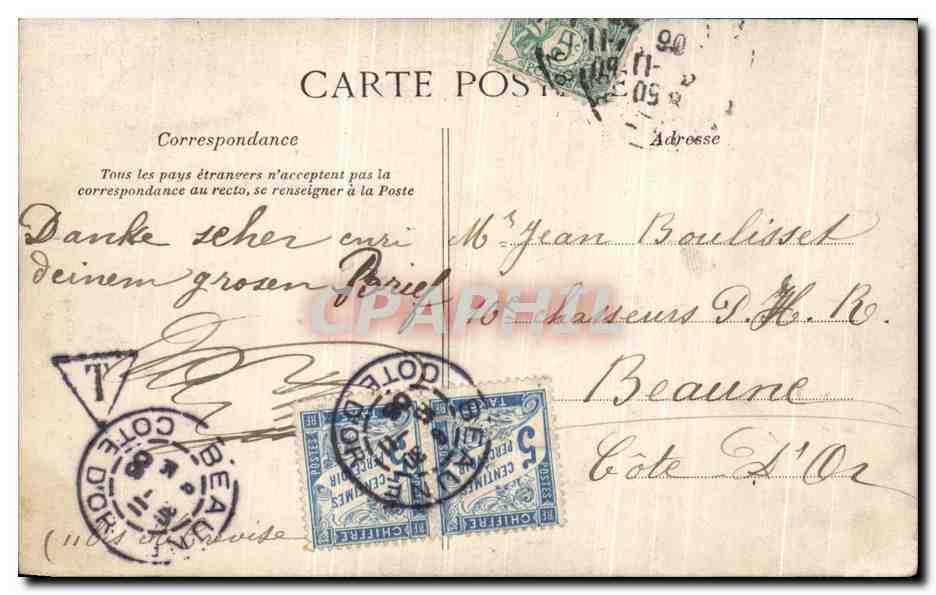 CARTE POSTALE
Correspondance
Adresse
Tous les pays étrangers n'acceptent pas la
correspondance au recto, se renseigner à la Poste
Danke scher
deinem grosen Brief
Mr Jean Boulisset
16e chasseurs D. H. R.
Beaune
Côte D'Or
CPARPHIL
T
BEAUNE
COTE D'OR
BEAUNE
COTE D'OR
5
CENTIMES
A PERCEVOIR
CHIFFRE TAXE
POSTES
RF
5
CENTIMES
A PERCEVOIR
CHIFFRE TAXE
POSTES
RF